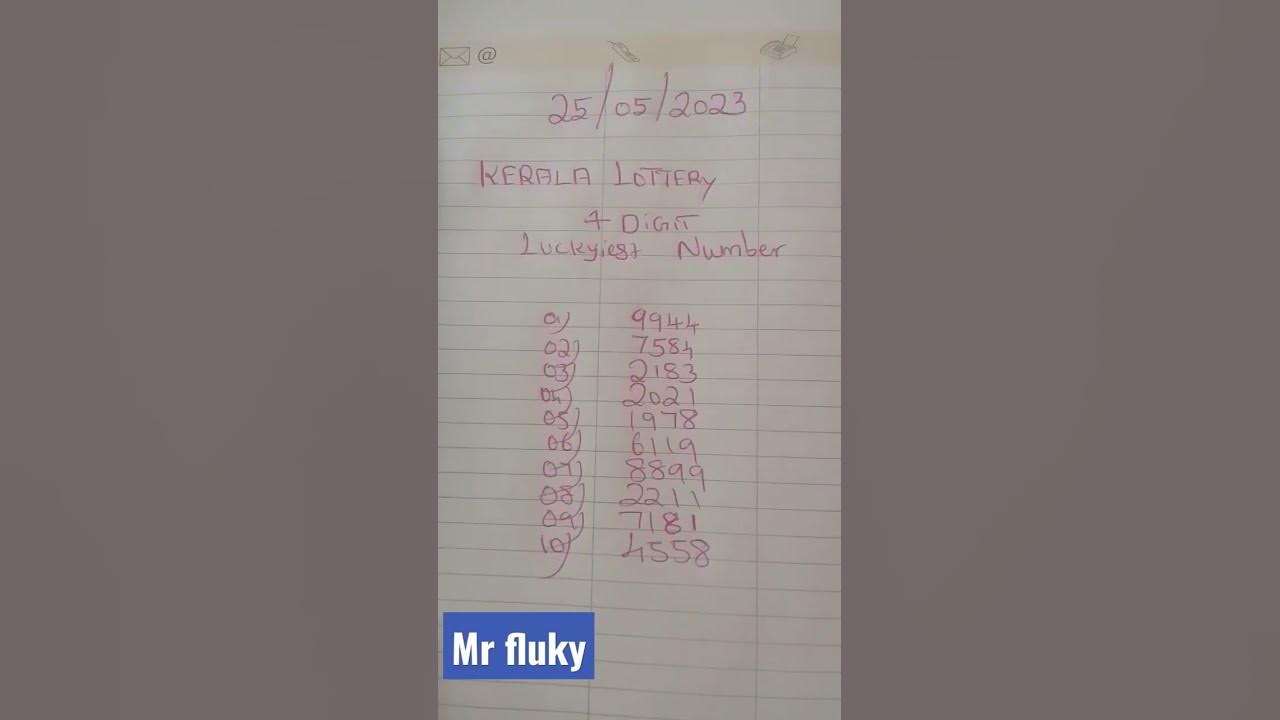 @
25/05/2023
KERALA LOTTERY
4 DiGiT
Luckyiest Number
01) 9944
02) 7584
03) 2183
04) 2021
05) 1978
06) 6119
07) 8899
08) 2211
09) 7181
10) 4558
Mr fluky